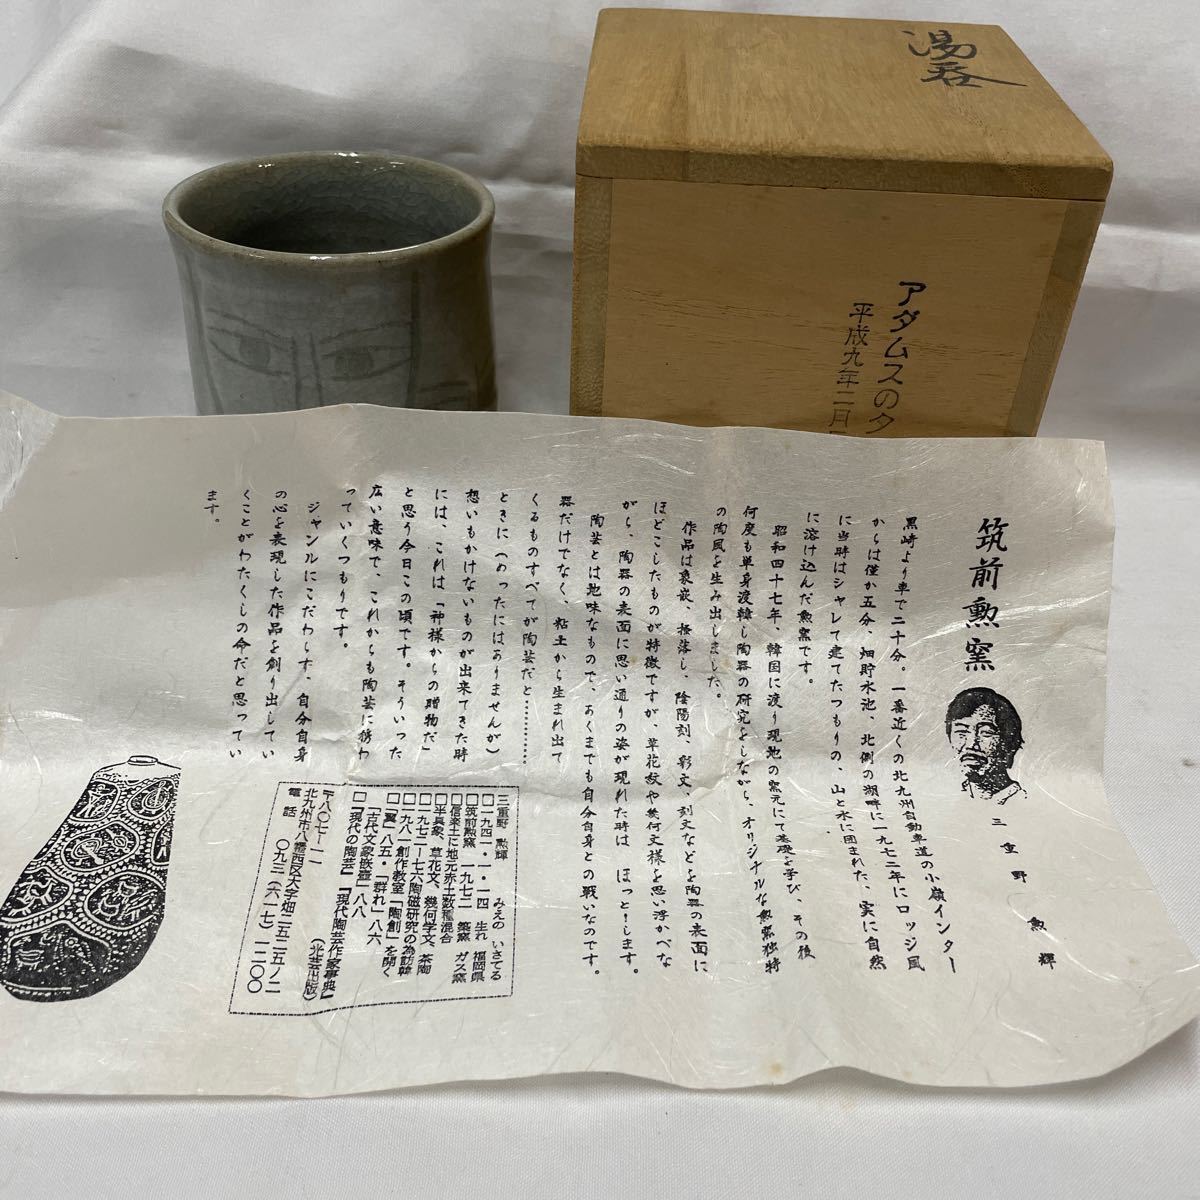 湯呑
アダムスのタ
平成九年二月
筑前勲窯
三重野勲輝
黒崎より車で二十分。一番近くの北九州自動車道の小嶺インター
からは僅か五分、畑貯水池、北側の湖畔に一九七二年にロッジ風
に当時はシャレて建てたつもりの、山と水に囲まれた、実に自然
に溶け込んだ勲窯です。
昭和四十七年、韓国に渡り現地の窯元にて基礎を学び、その後
何度も単身渡韓し陶器の研究をしながら、オリジナルな勲窯独特
の陶風を生み出しました。
作品は象嵌、掻落し、陰陽刻、彩文、刻文などを陶器の表面に
ほどこしたものが特徴ですが、草花紋や幾何文様を思い浮かべな
がら、陶器の表面に思い通りの姿が現れた時は ほっと!します。
陶芸とは地味なもので、あくまでも自分自身との戦いなのです。
器だけでなく、粘土から生まれ出て
くるものすべてが陶芸だと…………
ときに(めったにはありませんが)
想いもかけないものが出来てきた時
には、これは「神様からの贈物だ」
と思う今日この頃です。そういった
広い意味で、これからも陶芸に携わ
っていくつもりです。
ジャンルにこだわらず、自分自身
の心を表現した作品を創り出してい
くことがわたくしの命だと思ってい
ます。
三重野 勲輝 みえの いさてる
□一九四一・一・一四 生れ 福岡県
□筑前勲窯 一九七二 築窯 ガス窯
□信楽土に地元赤土数種混合
□半具象、草花文、幾何学文、茶陶
□一九七二―七六陶磁研究の為訪韓
□一九八一創作教室「陶創」を開く
□「翼」八五・「群れ」八六
「古代文象嵌壺」八八
□『現代の陶芸』『現代陶芸作家事典』
(光芸出版)
〒八〇七―一一
北九州市八幡西区大字畑二五二五ノ二
電話 〇九三(六一七)一二〇〇